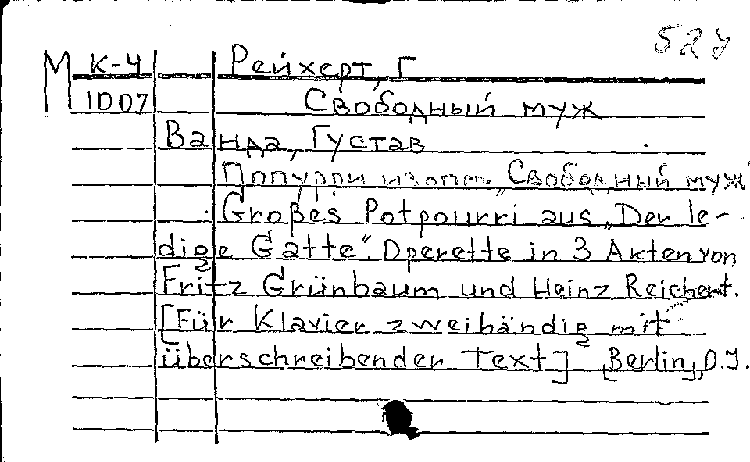 527
М К-4 Рейхерт, Г
1007 Свободный муж
Ванда, Густав
Попурри из опер. „Свободный муж"
Großes Potpourri aus „Der le-
dige Gatte". Operette in 3 Akten von
Fritz Grünbaum und Heinz Reichert.
[Für Klavier zweihändig mit
überschreibender Text] [Berlin], O.J.